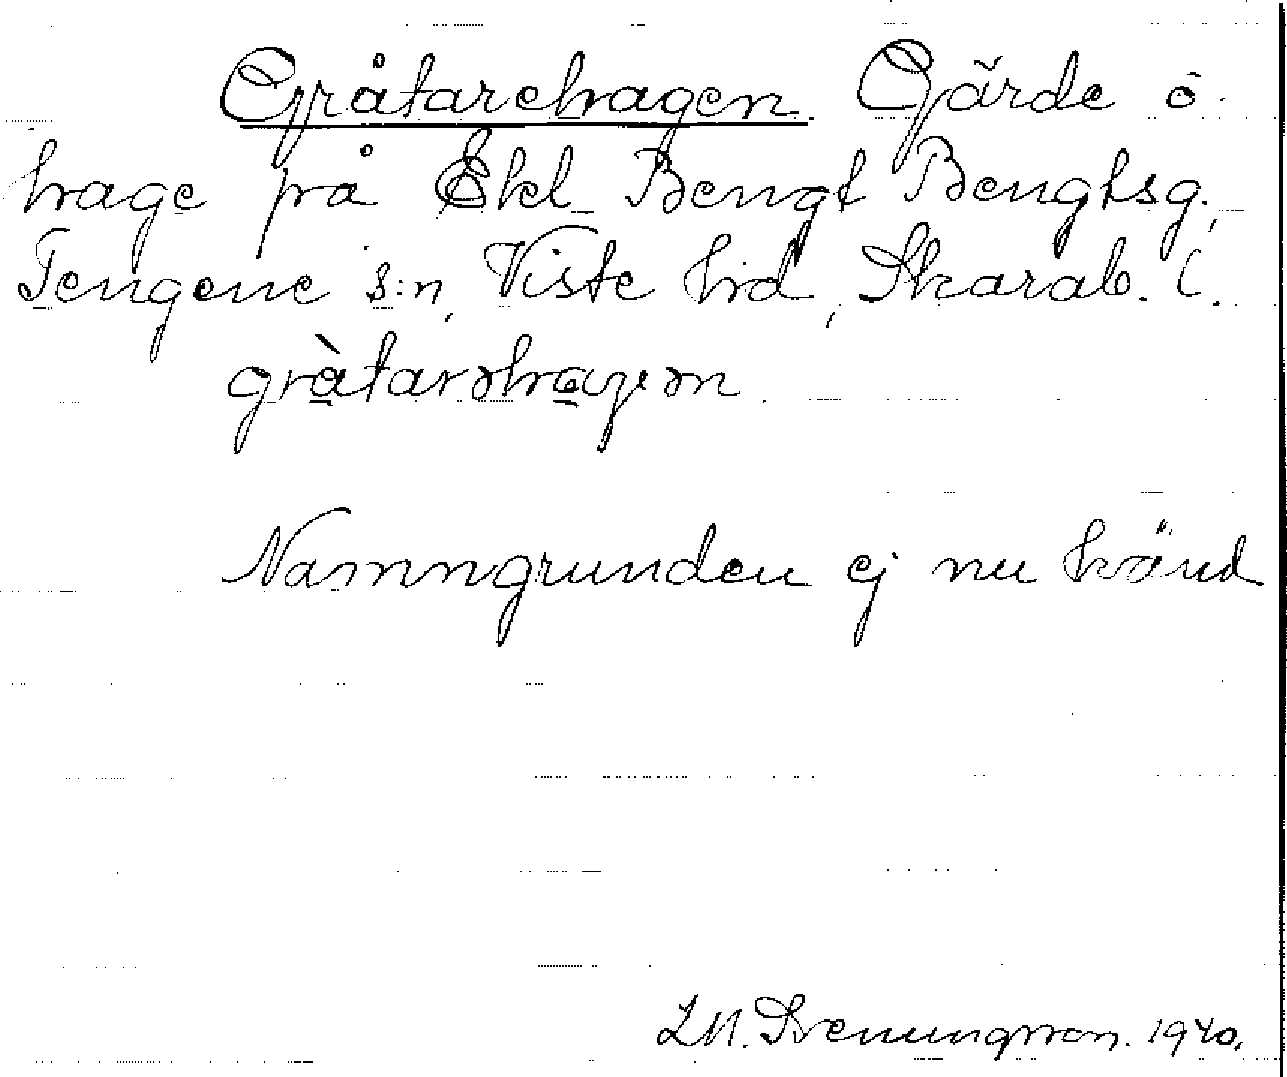 Gråtarehagen. Gärde o.
hage på Ekl. Bengt Bengtsg.,
Tengene s:n, Viste hd, Skarab. l.
gràtarəhaɡən.
Namngrunden ej nu känd
Svenungsson. 1940.